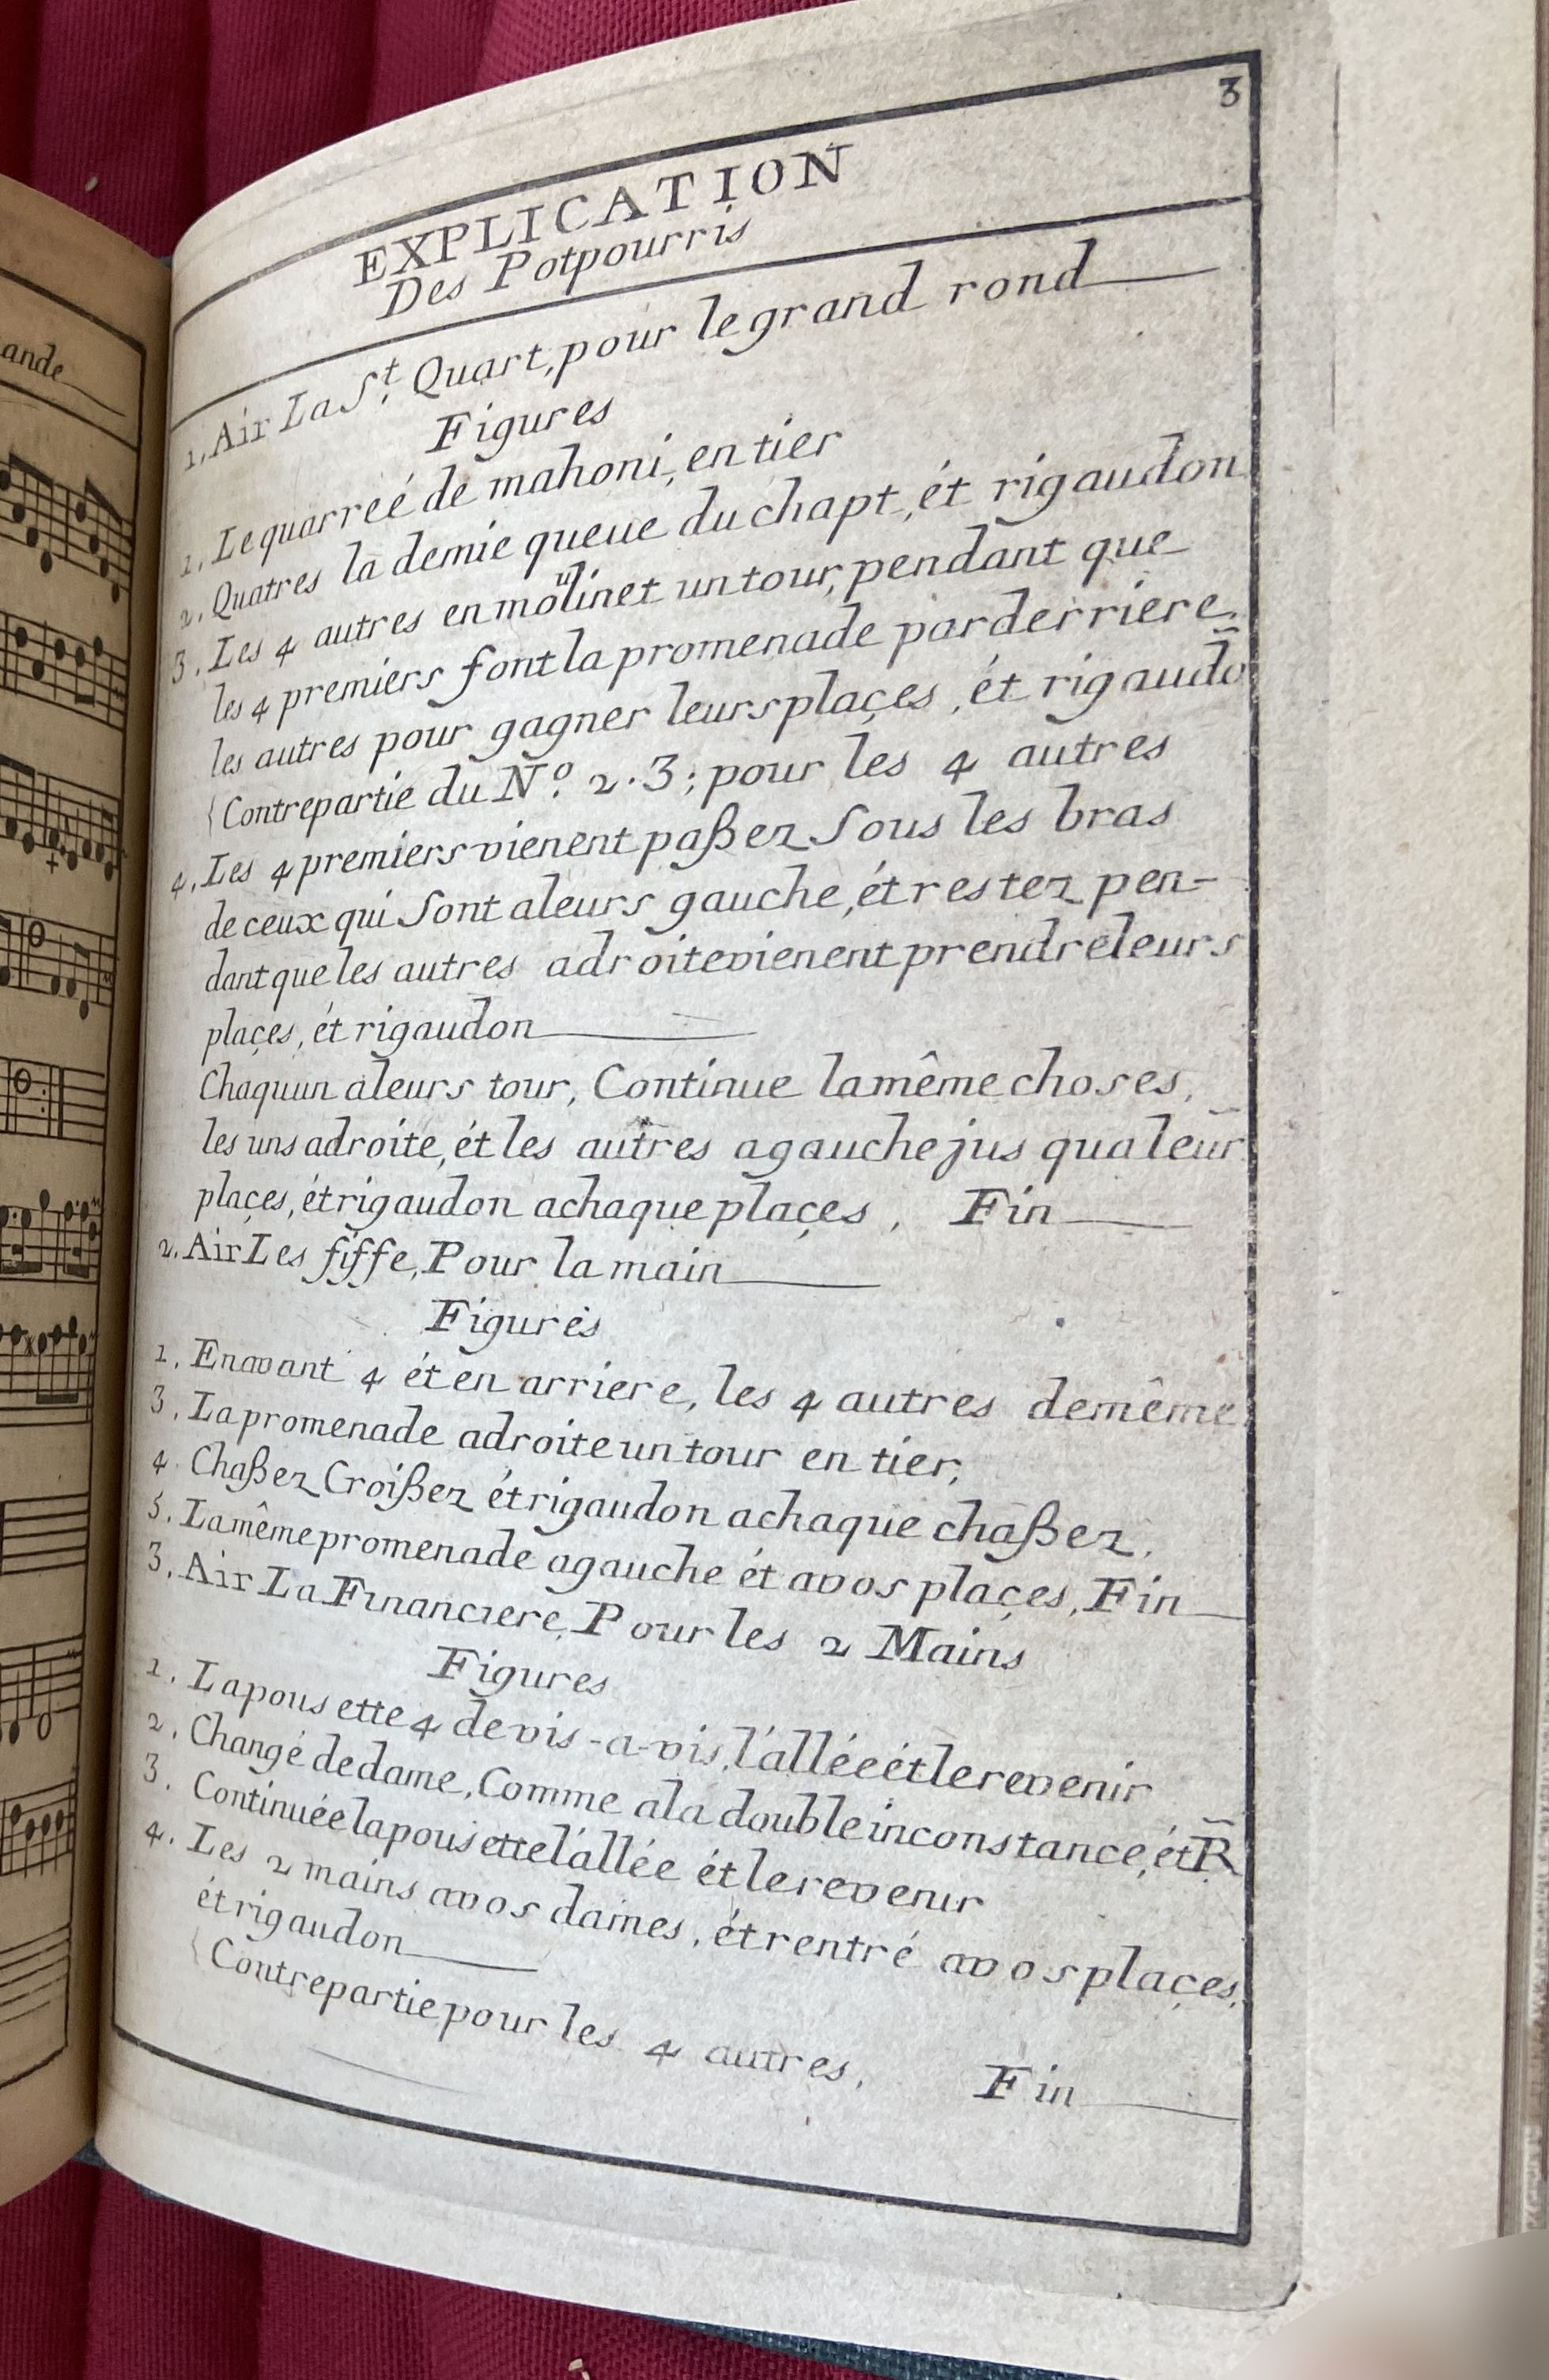 ande
3
EXPLICATION
Des Potpourris
1. Air La St. Quart, pour le grand rond
Figures
1. Le quarreé de mahoni, en tier
2. Quatres la demie queue du chapt, ét rigaudon
3. Les 4 autres en moulinet un tour, pendant que
les 4 premiers font la promenade par derriere
les autres pour gagner leurs plaçes, ét rigaudo̅
{Contrepartie du No. 2.3; pour les 4 autres
4. Les 4 premiers vienent paßez Sous les bras
de ceux qui Sont a leurs gauche, ét restez pen-
dant que les autres a droite vienent prendre leurs
plaçes, ét rigaudon
Chaquun a leurs tour, Continue la même choses,
les uns a droite, ét les autres a gauche jus qua leur
plaçes, ét rigaudon a chaque plaçes, Fin
2. Air Les fiffe, Pour la main
Figures
1. En avant 4 ét en arriere, les 4 autres de même
3. La promenade a droite un tour en tier,
4 Chaßez Croißez ét rigaudon a chaque chaßez,
5. La même promenade a gauche ét a vos plaçes, Fin
3. Air La Financiere, Pour les 2 Mains
Figures
1. La pousette 4 de vis-a-vis, l'allée ét le revenir
2. Changé de dame, Comme a la double inconstance, ét R̅
3. Continuée la pousette l'allée ét le revenir
4. Les 2 mains a vos dames, ét rentré a vos plaçes,
ét rigaudon
{Contrepartie pour les 4 autres, Fin